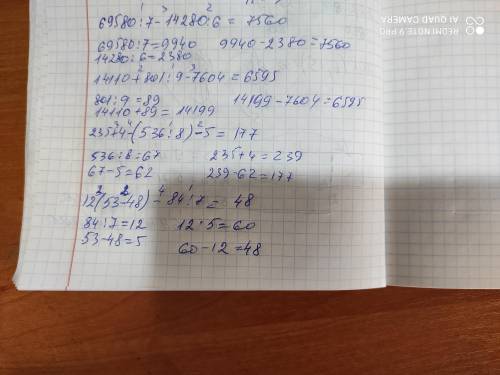 69580:7-14280:6= 7560
69580:7=9940 9940-2380=7560
14280:6=2380
14110+801:9-7604=6595
801:9=89 14199-7604=6595
14110+89=14199
235+4-(536:8)-5=177
536:8=67 235+4=239
67-5=62 239-62=177
12(53-48)-84:7= 48
84:7=12 12·5=60
53-48=5
60-12=48
REDMI NOTE 9 PRO
AI QUAD CAMERA